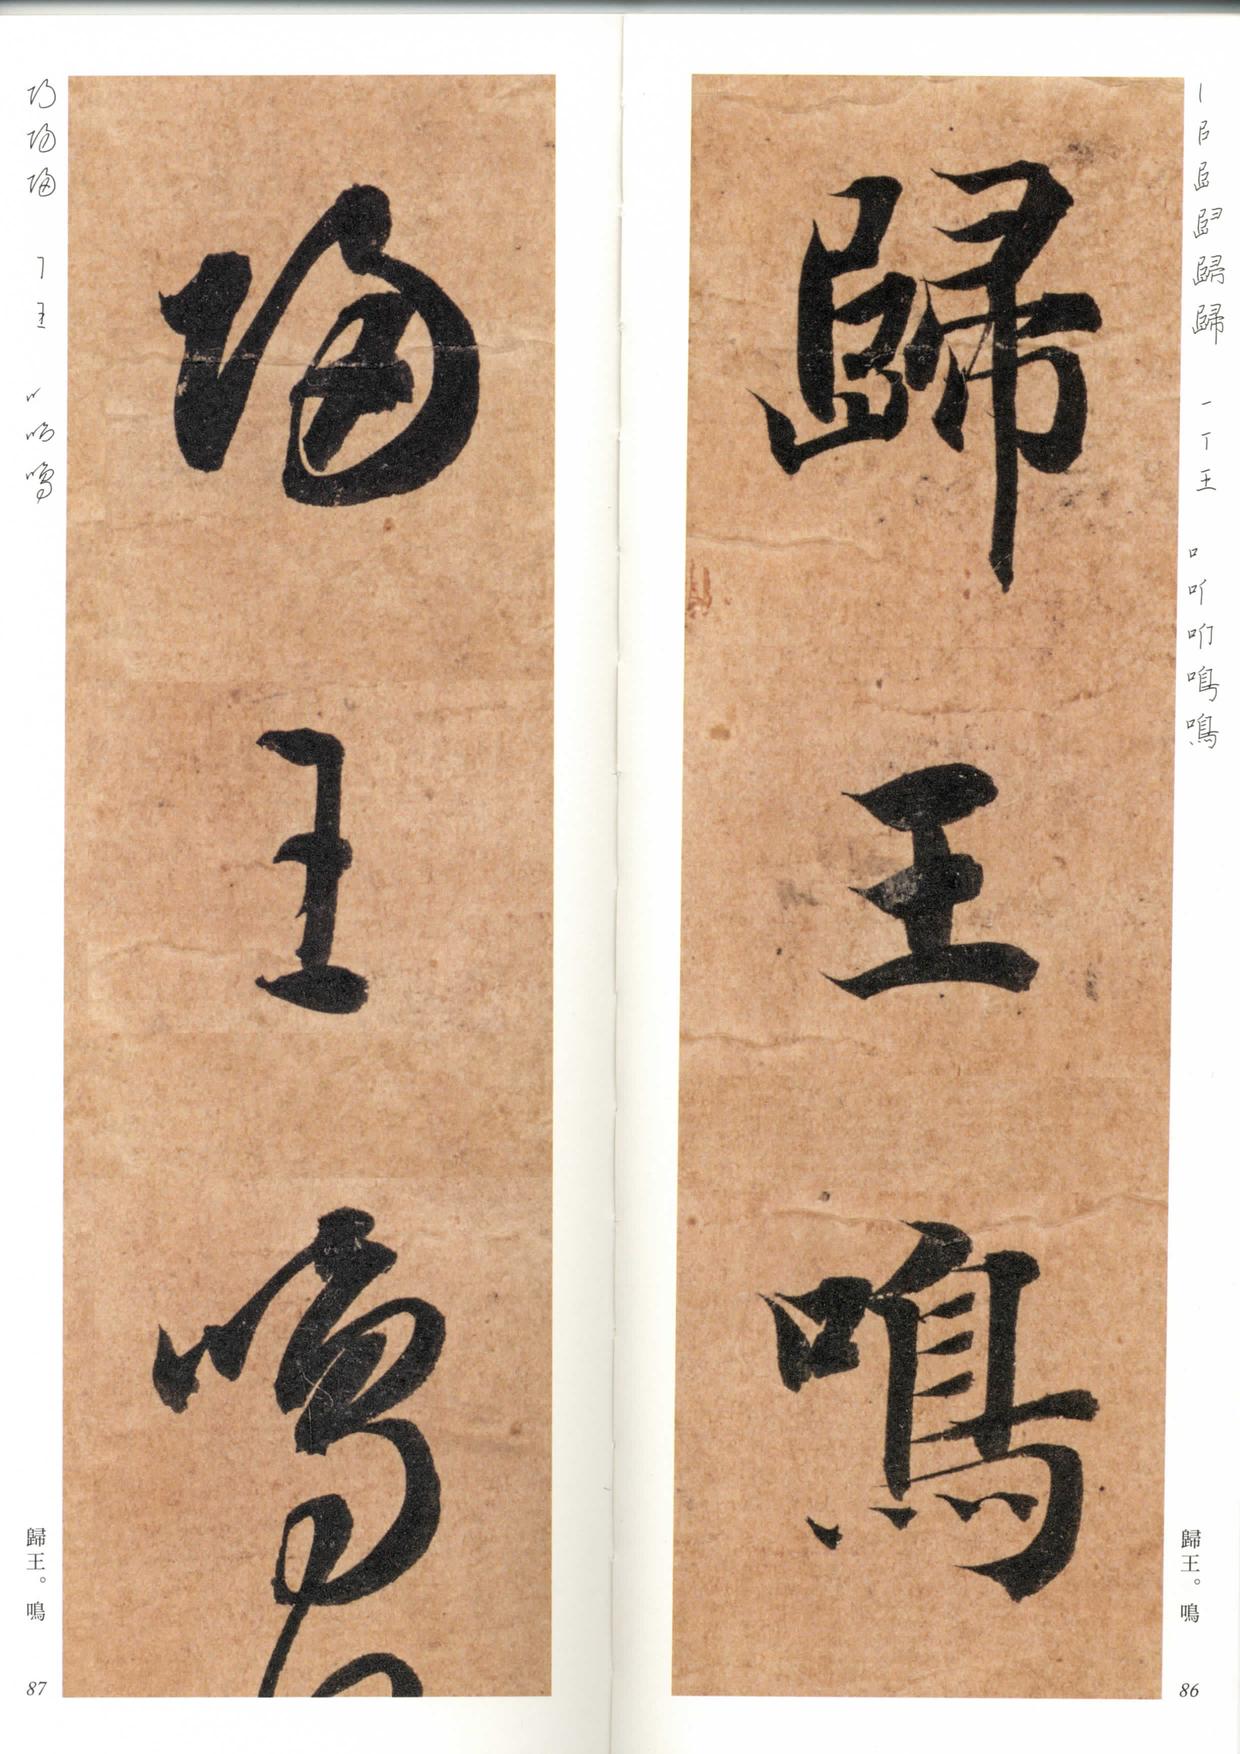 歸王鳴
歸王。鳴
86
歸王鳴
歸王。鳴
87